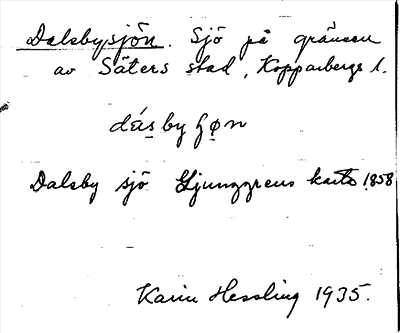 Dalsbysjön. Sjö på gränsen
av Säters stad, Kopparbergs l.
dásbyʃøn
Dalsby sjö Ljunggrens karta 1858
Karin Hessling 1935.